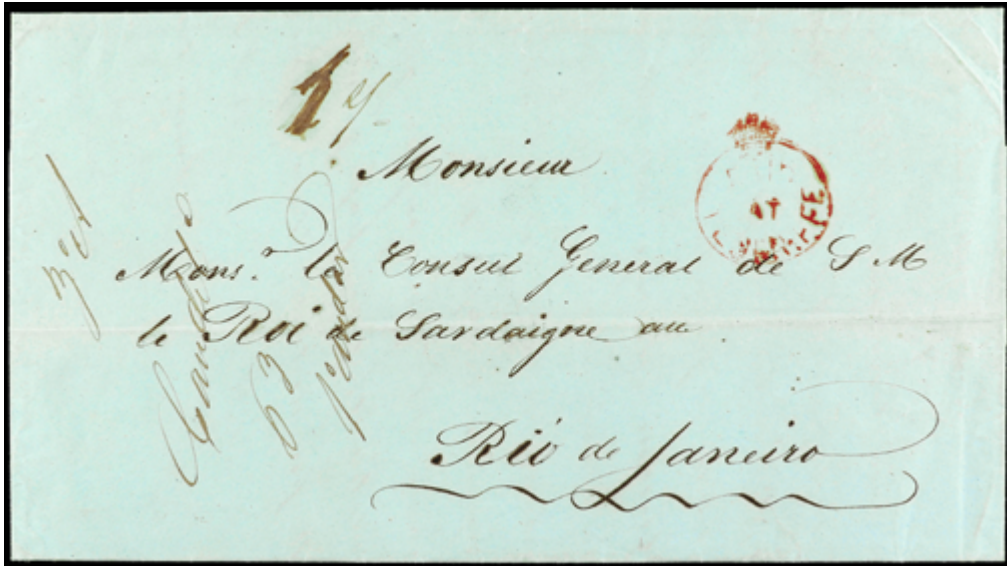 1
Monsieur
Mons.r le Consul General de S M
le Roi de Sardaigne au
Rio de Janeiro
AT
63
1º andar